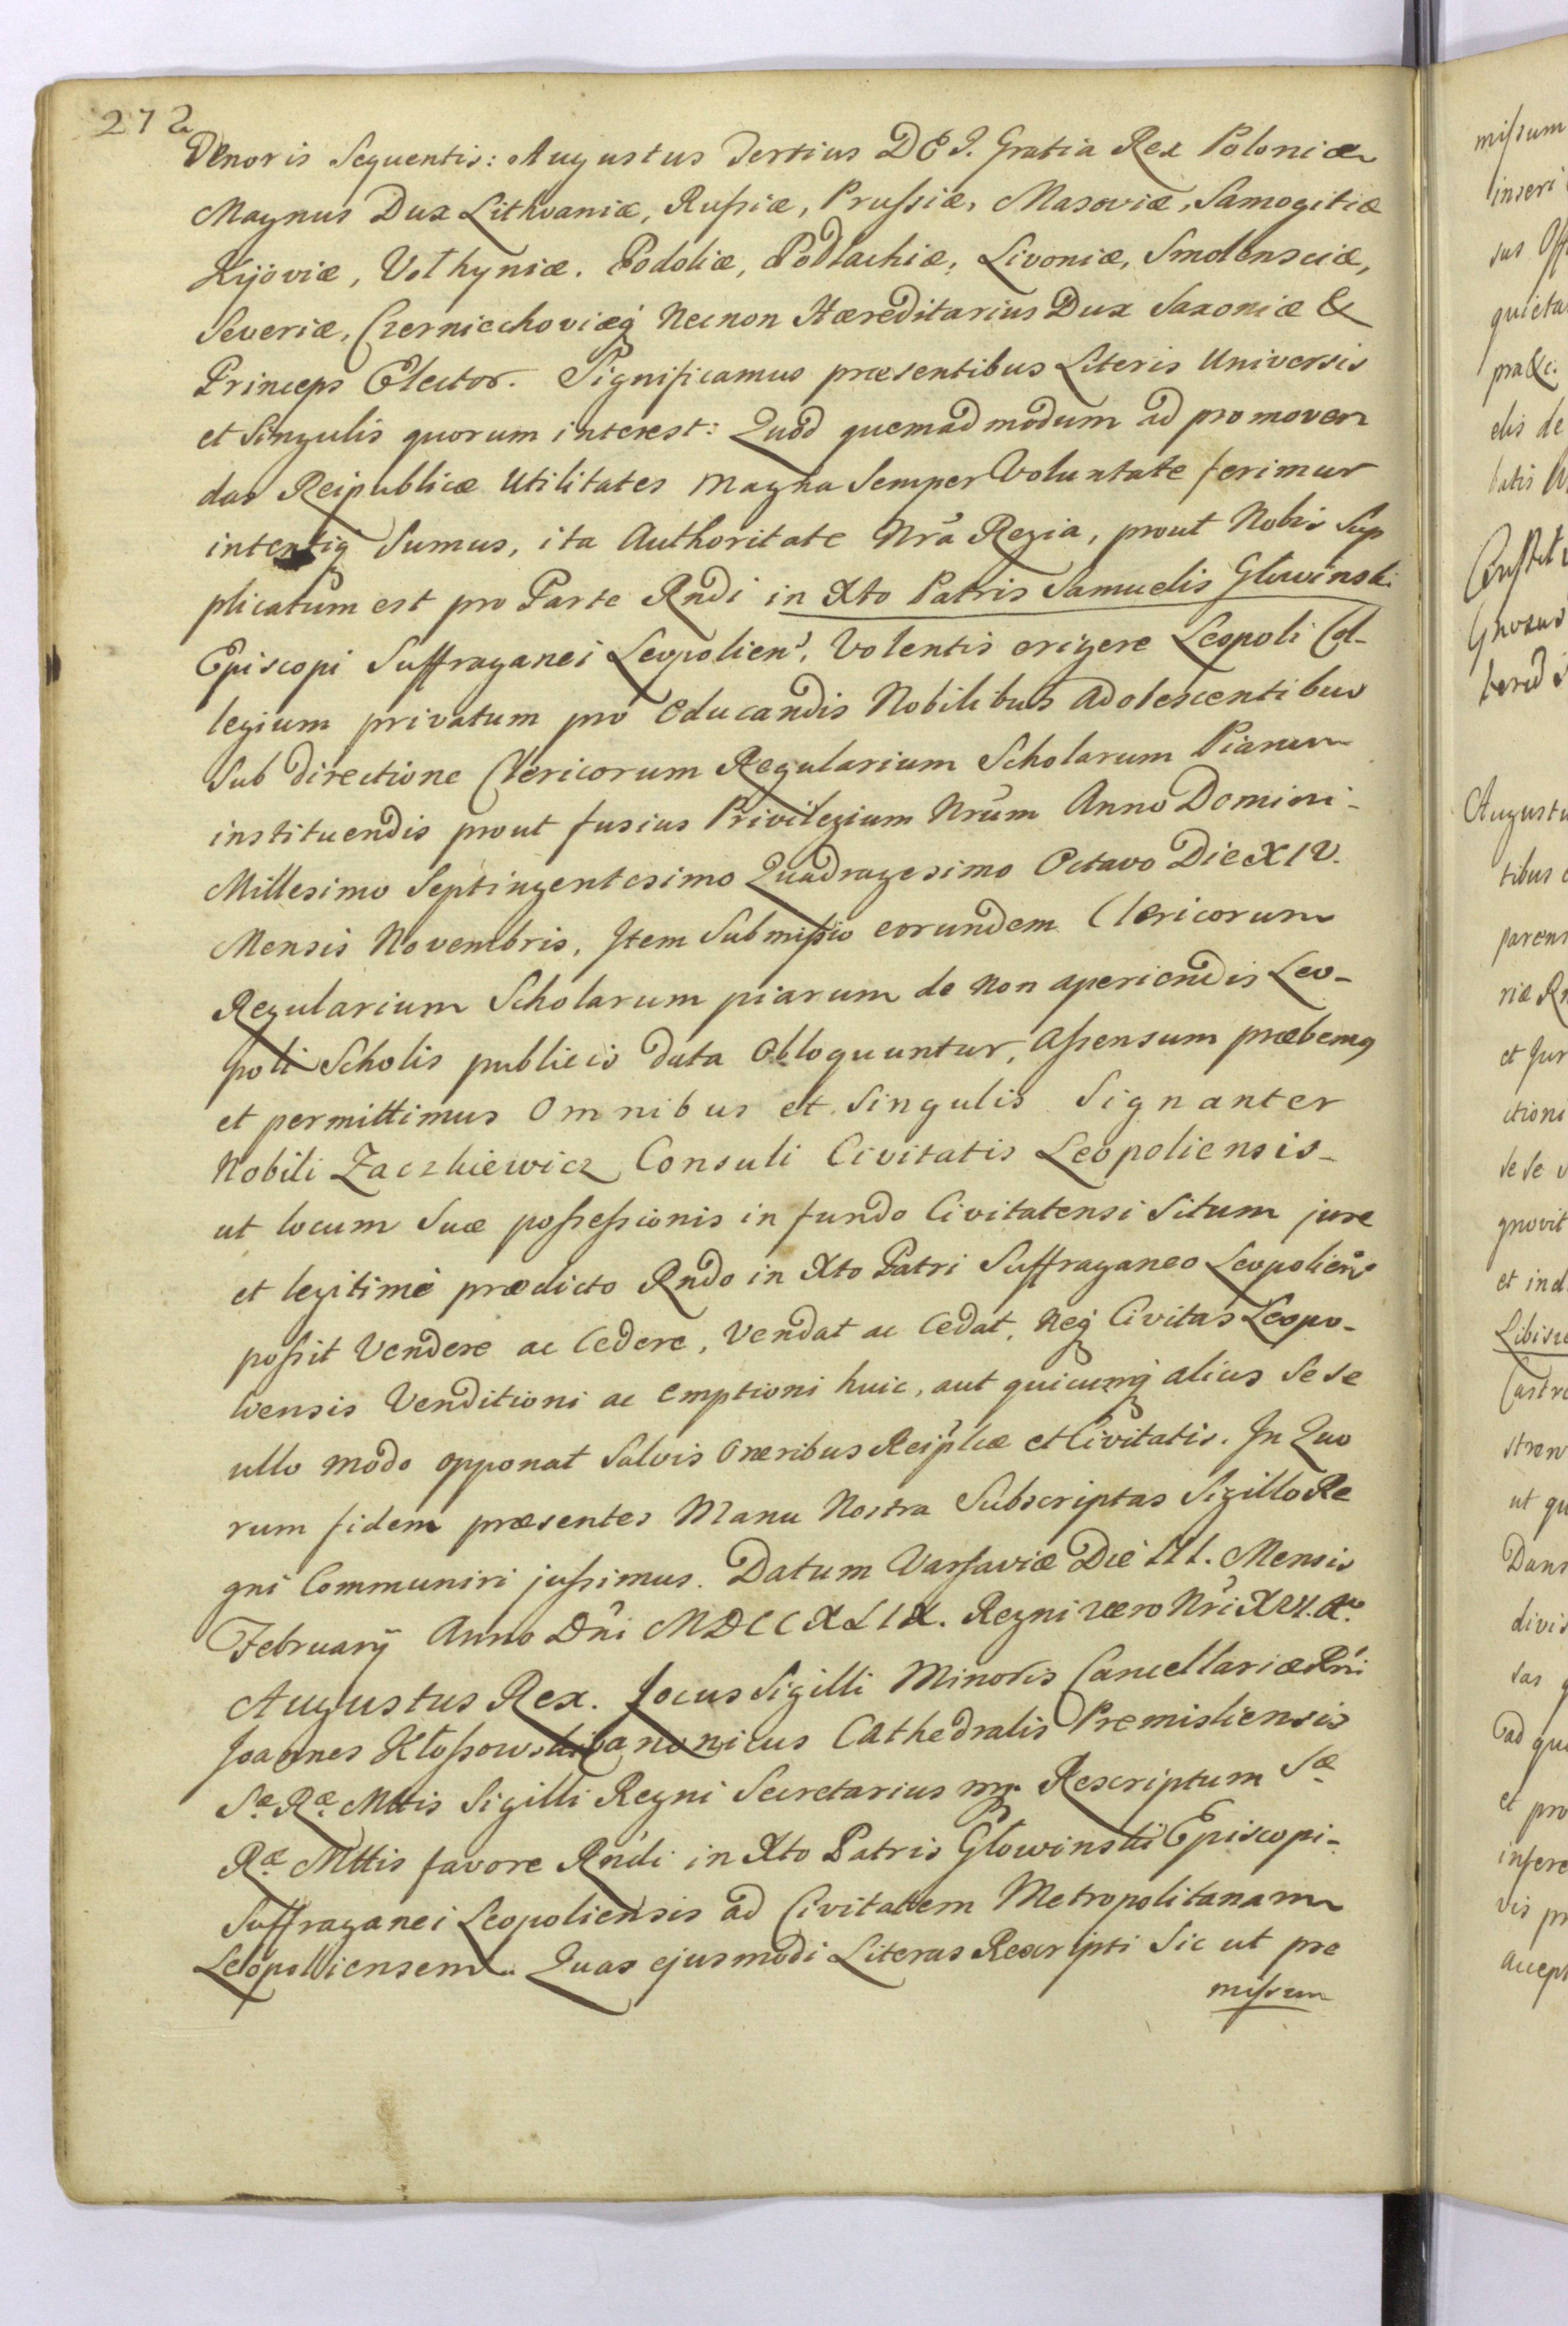 272
Tenoris Sequentis: Augustus Tertius DEI. Gratia Rex Poloniæ
Magnus Dux Lithvaniæ, Rußiæ, Prußiæ, Masoviæ, Samogitiæ
Kijoviæ, Volhyniæ, Podoliæ, Podlachiæ, Livoniæ, Smolensciæ,
Severiæ, Czerniechoviæq́ Necnon Hæreditarius Dux Saxoniæ &
Princeps Elector. Significamus præsentibus Literis Universis
et Singulis quorum interest: Quod quemadmodum ad promoven
das Reipublicæ Utilitates magna Semper Voluntate ferimur
intentiq Sumus, ita Authoritate Nrã Regia, prout Nobis Sup
plicatum est pro Parte Rndi in Xto Patris Samuelis Głowinski
Episcopi Suffraganei Leopolien', Volentis erigere Leopoli Col-
legium privatum pro educandis Nobilibus adolescentibus
Sub directione Clericorum Regularium Scholarum Piarum
instituendis prout fusius Privilegium Nrũm Anno Domini-
Millesimo Septingentesimo Quadragesimo Octavo Die XIV.
Mensis Novembris, Item Submißio eorundem Clericorum
Regularium Scholarum piarum de non aperiendis Leo-
poli Scholis publicis data Obloquuntur, Aßensum præbemq
et permittimus Omnibus et Singulis Signanter
Nobili Zaczkiewicz Consuli Civitatis Leopoliensis-
ut locum Suæ poßeßionis in fundo Civitatensi Situm jure
et legitimè prædicto Rndo in Xto Patri Suffraganeo Leopolien̂
poßit Vendere ac Cedere, Vendat ac Cedat, Neq́ Civitas Leopo-
liensis Venditioni ac emptioni huic, aut quicumq́ alius Sese
ullo modo opponat Salvis Oneribus Reip̃licæ et Civitatis. In Quo
rum fidem præsentes Manu Nostra Subscriptas Sigillo Re
gni Communiri jußimus. Datum Varsaviæ Die III. Mensis
Februarÿ Anno Dñi MDCCXLIX. Regni vero Nri XVI. Aº
Augustus Rex. Locus Sigilli Minoris Cancellariæ Rni
Joannes Kłoßowski Canonicus Cathedralis Premisliensis
Sæ Ræ Mttis Sigilli Regni Secretarius mp. Rescriptum Sæ
Ræ Mttis favore Rndi in Xto Patris Głowinski Episcopi-
Suffraganei Leopoliensis ad Civitatem Metropolitanam
Leopoliensem. Quas ejusmodi Literas Rescripti Sic ut præ
mißum
mißum
inseri
sus Off
quieta
pra&c.
elis de
batis
Gnosus
Augustu
tibus
parens
riæ
et Jur
ctioni
sese
gnovit
et ind
Libisze
Castre
stren
ut qu
Dans
divis
sas
ad qu
et pro
infere
vis pr
accept